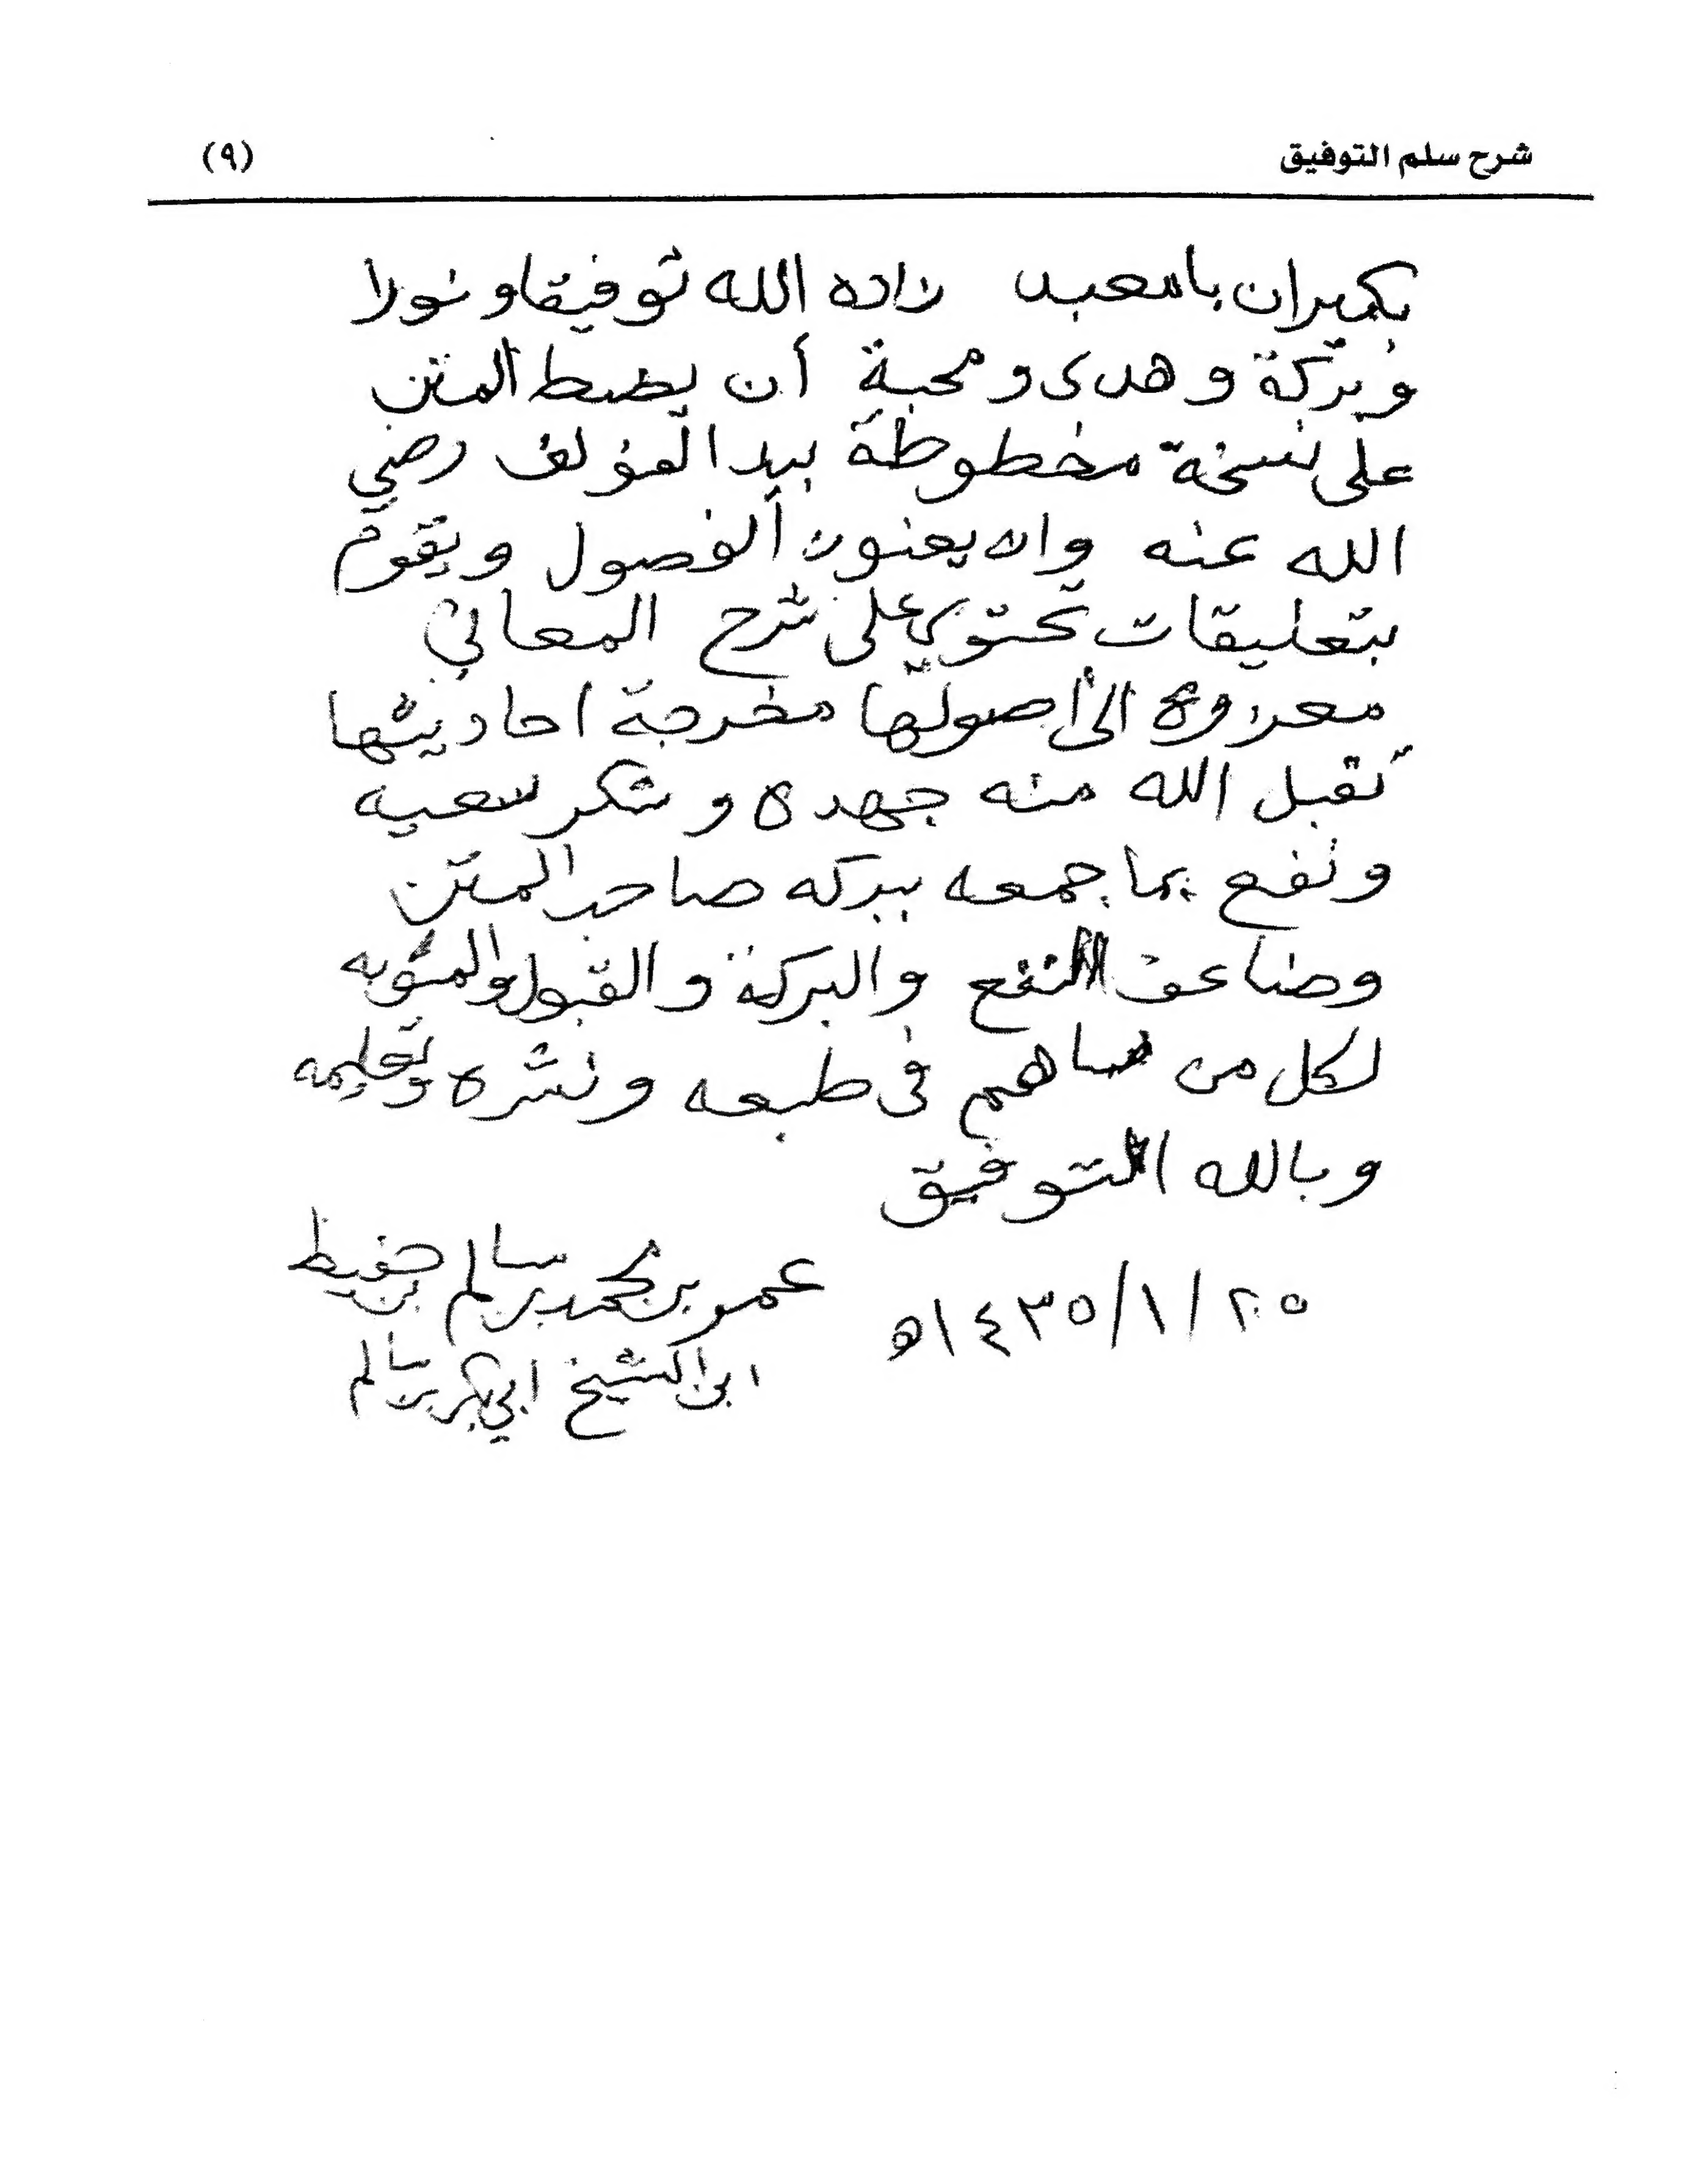 شرح سلم التوفيق
(٩)
بكيران باسعيد زاده الله توفيقا ونورا
وبركة وهدى ومحبة أن يضبط المتن
على نسخة مخطوطة بيد المؤلف رضي
الله عنه وان يعنون الفصول ويقوم
بتعليقات تحتوي على شرح المعاني
معزوة الى أصولها مخرجة احاديثها
تقبل الله منه جهده وشكر سعيه
ونفع بما جمعه ببركه صاحب المتن
وضاعف النفع والبركة والقبول والمثوبه
لكل من ساهم في طبعه ونشره وتعليمه
وبالله التوفيق
عمر بن محمد بن سالم بن حفيظ
٢٥/١/١٤٣٥ه
ابن الشيخ ابي بكر بن سالم